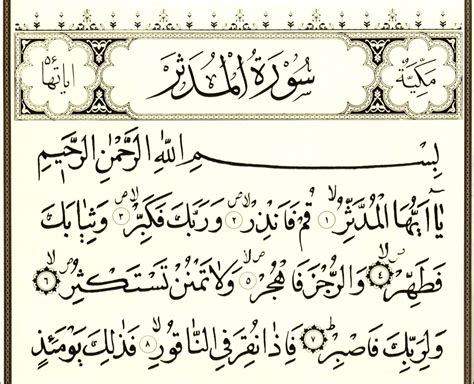 مكية سورة المدثر آياتها ٥٦
بسم الله الرحمن الرحيم
يَا أَيُّهَا الْمُدَّثِّرُ ۙ ﴿١﴾ قُمْ فَانْذِرْ ۙ ص ﴿٢﴾ وَرَبَّكَ فَكَبِّرْ ۙ ص ﴿٣﴾ وَثِيَابَكَ
فَطَهِّرْ ۙ ص ﴿٤﴾ وَالرُّجْزَ فَاهْجُرْ ۙ ص ﴿٥﴾ وَلَا تَمْنُنْ تَسْتَكْثِرُ ۙ ص ﴿٦﴾
وَلِرَبِّكَ فَاصْبِرْ ۜ ﴿٧﴾ فَإِذَا نُقِرَ فِي النَّاقُورِ ۙ ﴿٨﴾ فَذٰلِكَ يَوْمَئِذٍ